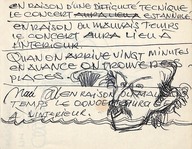 EN RAISON D'UNE DIFFICULTE TECNIQUE
LE CONCERT AURA LIEU A EST ANNULE
EN RAISON DU MAUVAIS TEMPS
LE CONCERT AURA LIEU A
L'INTERIEUR.
QUAN EN ARRIVE VINGT MINUTES
EN AVANCE ON TROUVE DES
PLACES.
EN RAISON DU MAUVAIS
TEMPS LE CONCERT AURA
L'INTERIEUR.